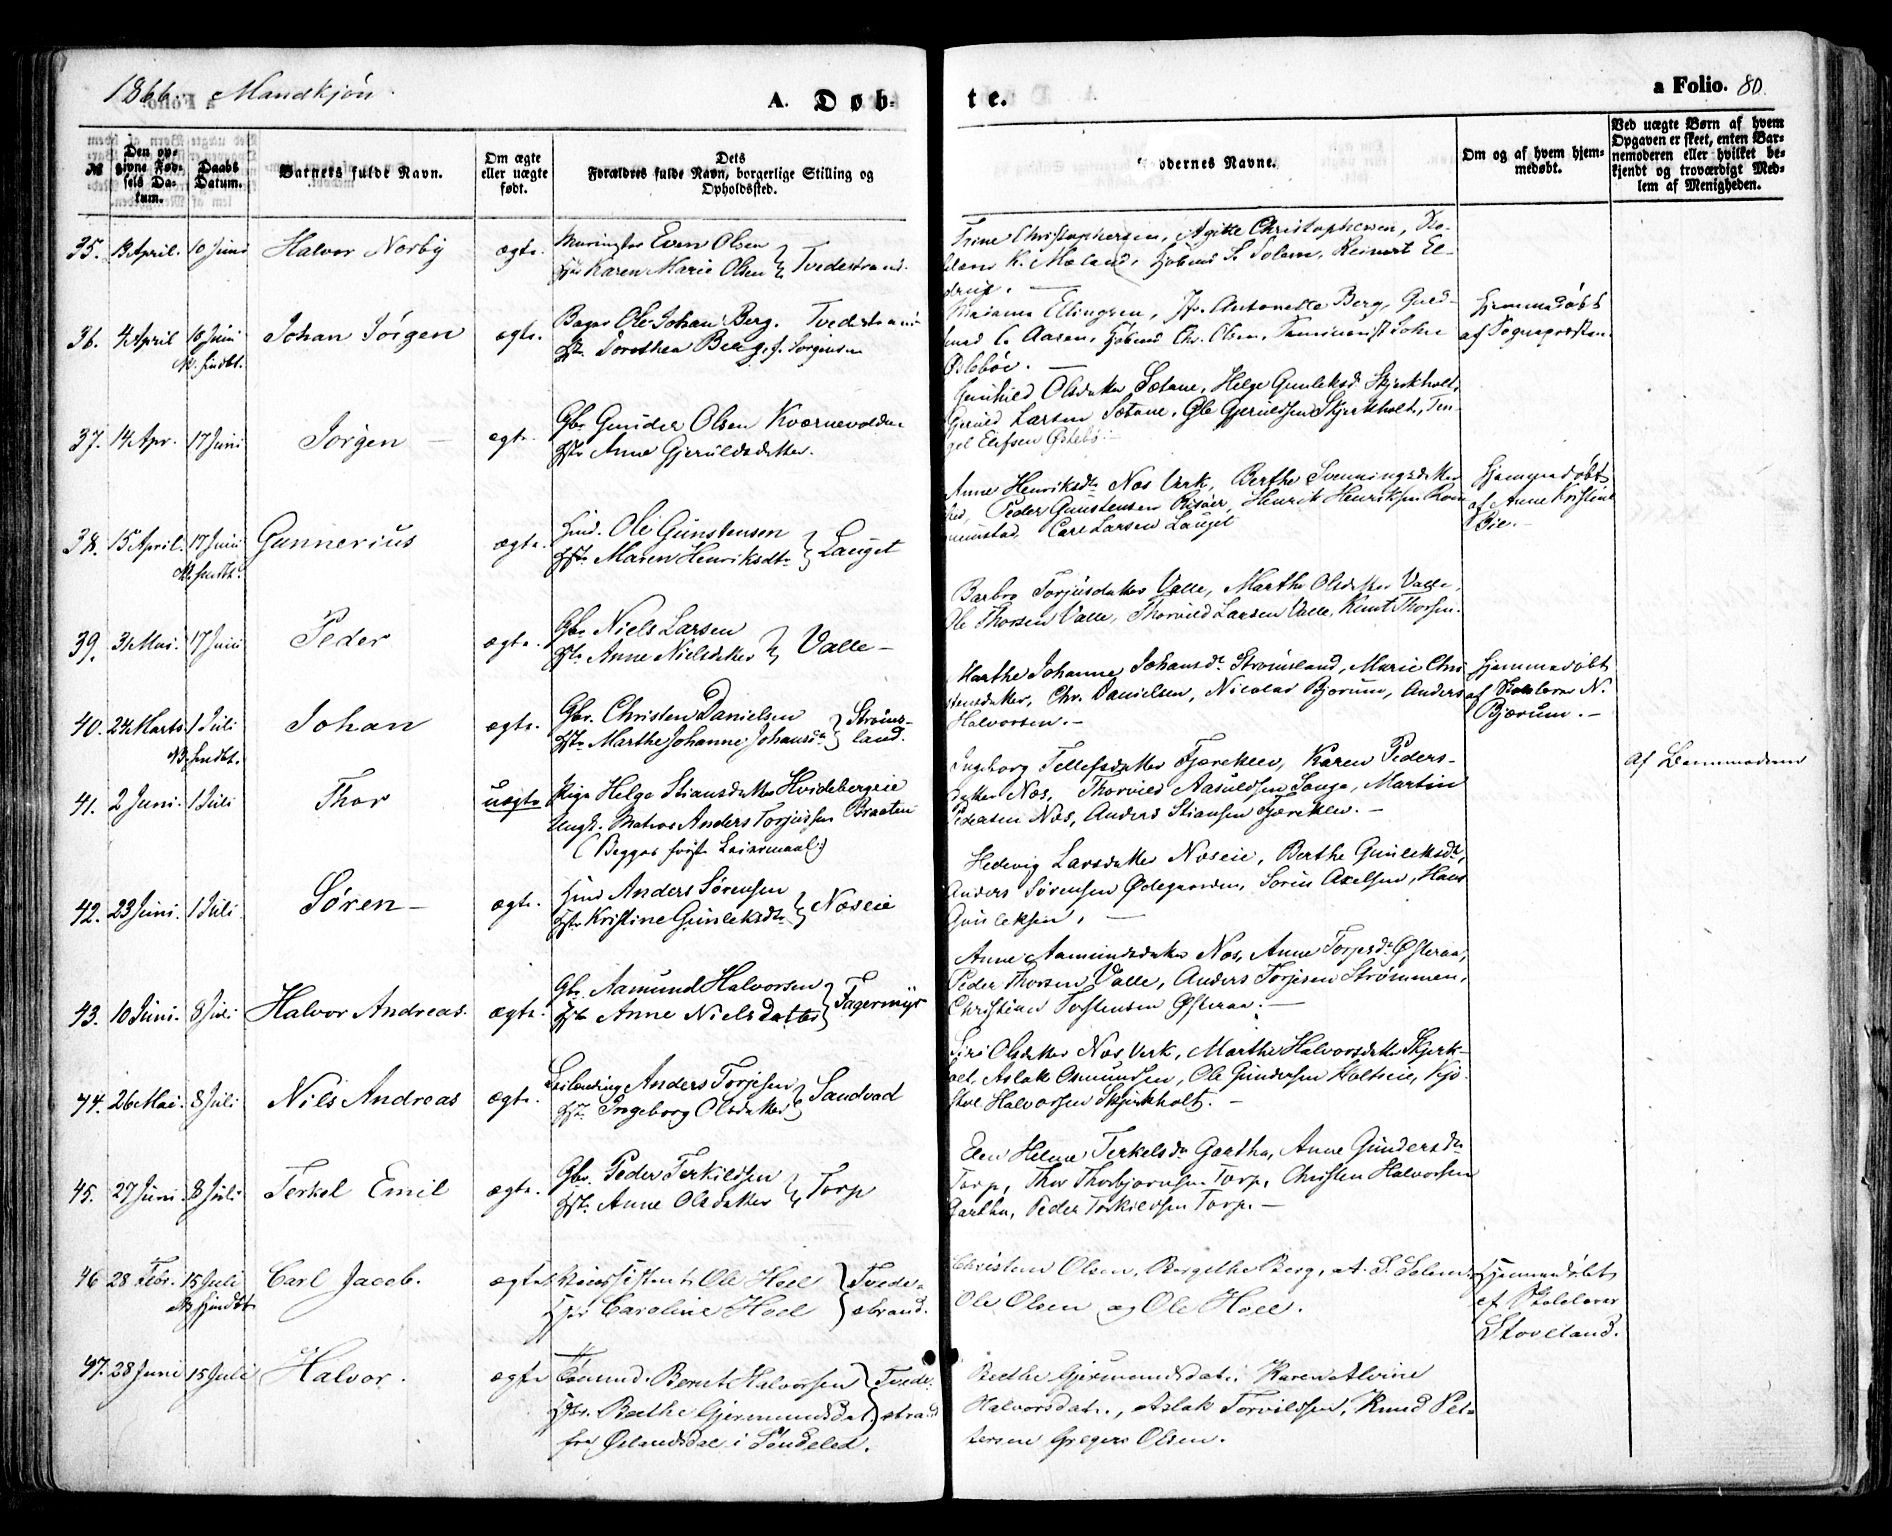 1866. Mandkjøn.
A. Døb-
te.
a Folio. 80.
№
Den op-
givne Fød-
sels Da-
tum.
Daabs
Datum.
Barnets fulde Navn.
Om ægte
eller uægte
født.
Dets
Forældres fulde Navn, borgerlige Stilling og
Opholdssted.
odernes Navne.
Om og af hvem hjem-
medøbt.
Ved uægte Børn af hvem
Opgaven er skeet, enten Bar-
nemoderen eller hvilket be-
kjendt og troværdigt Med-
lem af Menigheden.
35. 13 April. 10 Juni Halvor Norby ægte. Even Olsen
Karen Marie Olsen } Tvedestrand.
Trine Christophersen, Agitte Christophersen,
K. Mæland, S. Solem, Reinert El-
drup.
36. 4 April 10 Juni Johan Jørgen ægte. Bager Ole Johan Berg. Tvedestrand
Nb. hindbt. Hstr. Dorothea Berg, f. Jörgensen
Mariane Ellingsen, Jfr. Antonette Berg, Gud-
C. Aasen, Chr. Olsen, John
Østebøe.
Hjemmedøbt
af Sognepræsten.
37. 14 Apr. 17 Juni Jørgen ægte. Gbr. Gunder Olsen Kværnevolden
Hstr. Anne Gjeruldsdatter.
Gunhild Olsdatter Sætane, Helge Gunleksd Skjerkholt,
Gjeruld Larsen Sætane, Ole Gjeruldsen Skjerkholt, Ten-
gel Elefsen Østebø.
38. 15 April. 17 Juni Gunnerius ægte. Hmd. Ole Gunstensen
Nb. hindbt. Hstr. Maren Henriksdtr } Lauget
Anne Henriksdtr Næs Verk, Berthe Svenningsdatter
Peder Gunstensen Risöer, Henrik Henriksen
Carl Larsen Lauget
Hjemmedøbt
af Anne Kristine
Bie.
39. 31 Mai. 17 Juni Peder ægte. Gbr. Niels Larsen
Hstr. Anne Nielsdatter } Valle
Barbro Torjusdatter Valle, Marthe Olsdatter Valle,
Ole Thorsen Valle, Thorvild Larsen Valle, Knut Thorsen.
40. 24 Marts. 1 Juli Johan ægte. Gbr. Christen Danielsen
Nb. hindbt. Hstr. Marthe Johanne Johansdr } Ströms-
land.
Marthe Johanne Johansdr Strömsland, Marie Chri-
stensdatter, Chr. Danielsen, Nicolai Bjorum, Anders
Halvorsen.
Hjemmedøbt
af Skolelærer N.
Bjørum.
41. 2 Juni. 1 Juli Thor uægte Pige Helge Stiansdatter Hvidebergeie
Ungk. Matros Anders Torjusen Braaten
(Begges første Leiermaal)
Ingeborg Tellefsdatter Fjæreklev, Karen Peders-
datter Næs, Thorvild Aasuldsen Songe, Martin
Pedersen Næs, Anders Stiansen Fjæreklev.
Af Barnemoderen
42. 23 Juni. 1 Juli Søren ægte. Hmd Anders Sørensen
Hstr. Kristine Gunleksdtr } Næseie
Hedevig Larsdatter Næseie, Berthe Gunleksdtr,
Anders Sørensen Ødegaarden, Sørin Axelsen, Hans
Gunleksen.
43. 10 Juni. 8 Juli Halvor Andreas. ægte. Gbr. Aamund Halvorsen
Hstr. Anne Nielsdatter } Fagermyr
Anne Aamundsdatter Næs, Anne Torjesdr Østeraa,
Peder Thorsen Valle, Anders Torjesen Strømmen,
Christian Torstensen Østeraa.
44. 26 Mai. 8 Juli Nils Andreas ægte. Leilænding Anders Torjesen
Hstr. Ingeborg Olsdatter } Sandvad
Siri Olsdatter Næs Verk, Marthe Halvorsdatter Skjerk-
holt, Aslak Osmundsen, Ole Gundersen Holtseie, Kjø-
Halvorsen Skjerkholt.
45. 27 Juni. 8 Juli Terkel Emil ægte. Gbr. Peder Terkildsen
Hstr. Anne Olsdatter } Torp
Elen Helene Terkelsdr Gartha, Anne Gundersdtr
Torp, Thor Thorbjørnsen Torp, Christen Halvorsen
Gartha, Peder Torkildsen Torp.
46 28 Febr. 15 Juli Carl Jacob. ægte Ole Hoel
Nb hjindbt Caroline Hoel } Tvede-
strand.
Christine Olsen, Bergethe Berg, A. S. Solem
Ole Olsen og Ole Hoel.
Hjemmedøbt
af Skolelærer
Stoveland.
47. 28 Juni 15 Juli Halvor. ægte Tømmd. Bernt Halvorsen
Hstr. Berthe Gjermundsdat } Tvede-
strand
fra Øslandsdal i Søndeled.
Berthe Gjermundsdat, Karen Alvine
Halvorsdat., Aslak Torvildsen, Knud Pet-
tersen Gregers Olsen.